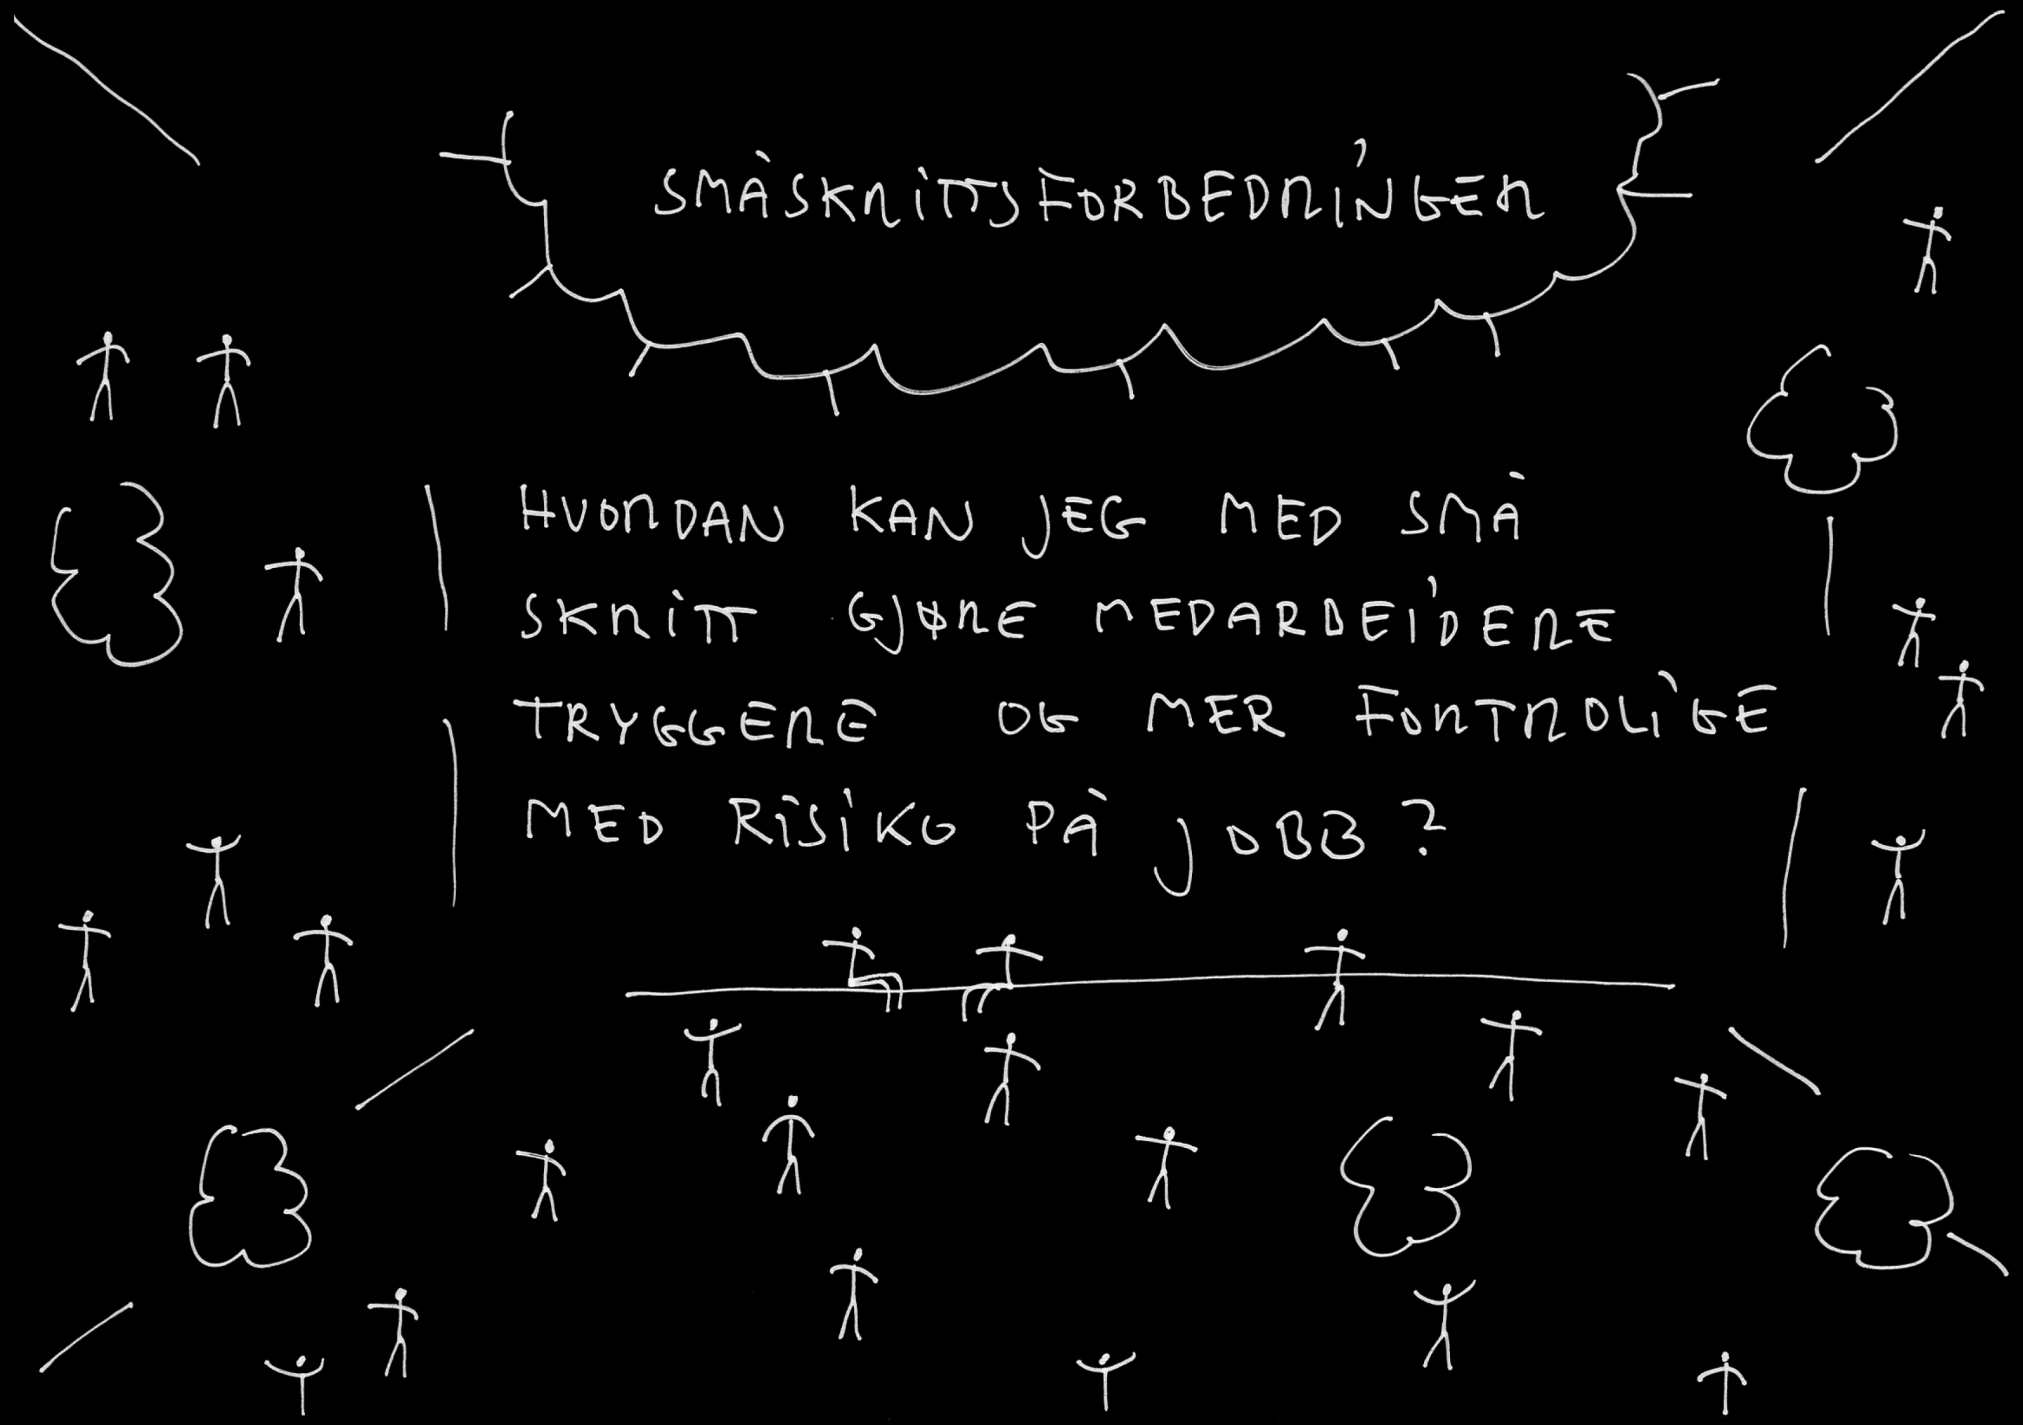 SMÅSKRITTSFORBEDRINGER
HVORDAN KAN JEG MED SMÅ
SKRITT GJØRE MEDARBEIDERE
TRYGGERE OG MER FORTROLIGE
MED RISIKO PÅ JOBB?